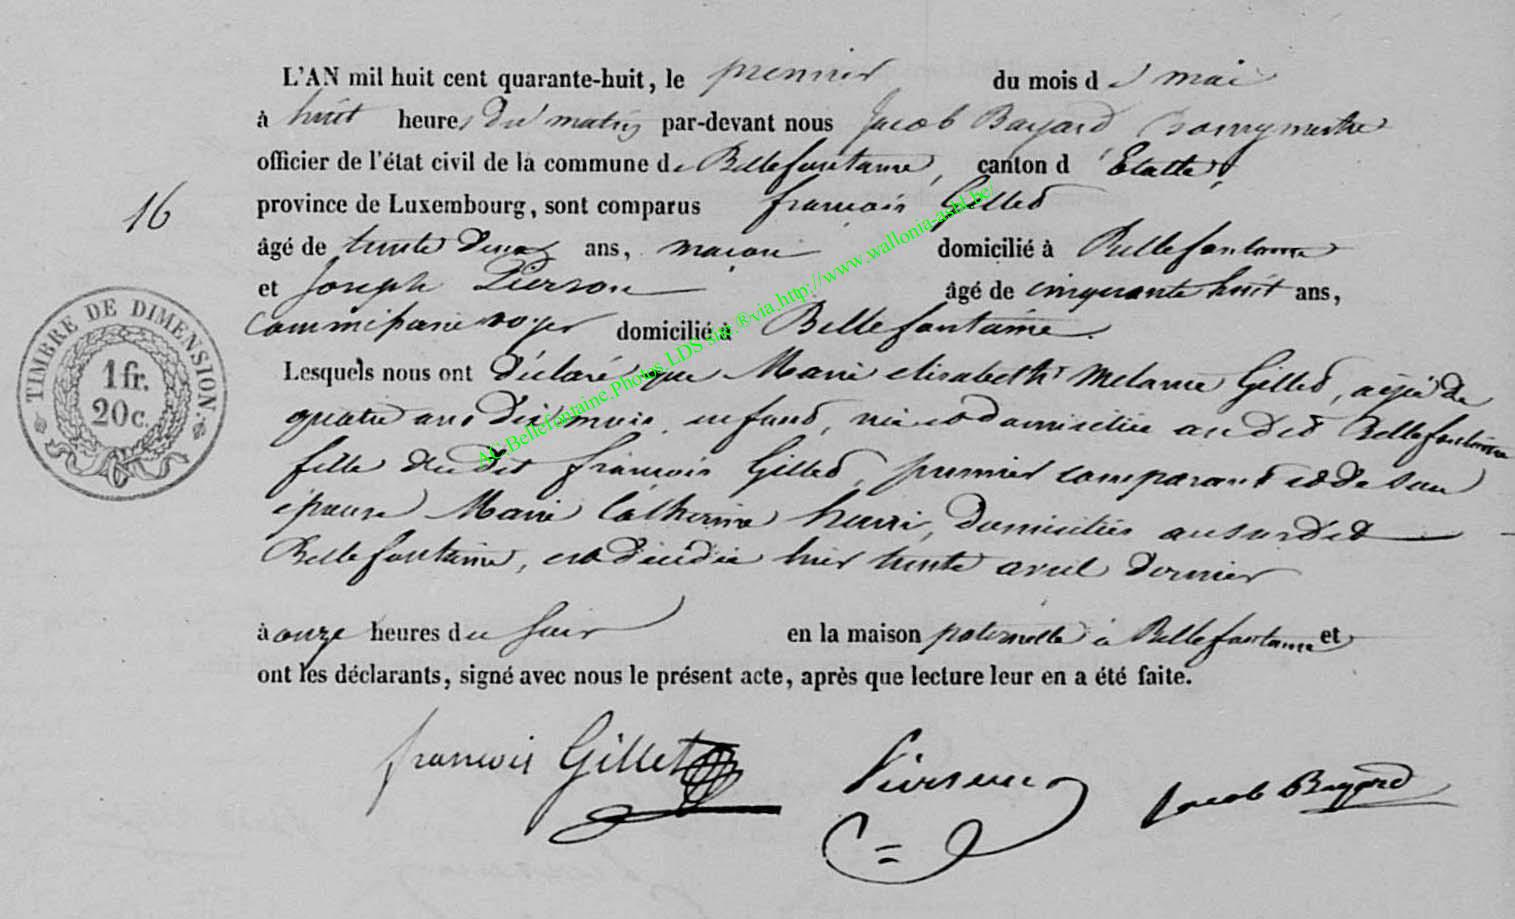 L'AN mil huit cent quarante-huit, le premier du mois de mai
à huit heures du matin par-devant nous Jacob Bayard Bourgmestre
officier de l'état civil de la commune de Bellefontaine, canton d'Etalle,
province de Luxembourg, sont comparus françois Gillet
16
âgé de trente deux ans, maçon domicilié à Bellefontaine
et Joseph Pierson âgé de cinquante huit ans,
commissaire voyer domicilié à Bellefontaine.
Lesquels nous ont déclaré que Marie elisabeth Melanie Gillet, agée de
quatre ans dix mois, enfant, née et domiciliée audit Bellefontaine
fille dudit françois Gillet, premier comparant et de son
épouse Marie Catherine henri, domiciliés ausurdit
Bellefontaine, est décédée hier trente avril dernier
à onze heures du soir en la maison paternelle à Bellefontaine et
ont les déclarants, signé avec nous le présent acte, après que lecture leur en a été faite.
françois Gillet Pierson Jacob Bayard
TIMBRE DE DIMENSION.
1 fr.
20 c.
AC-Bellefontaine.Photos.LDS sur ®via http://www.wallonia-asbl.be/